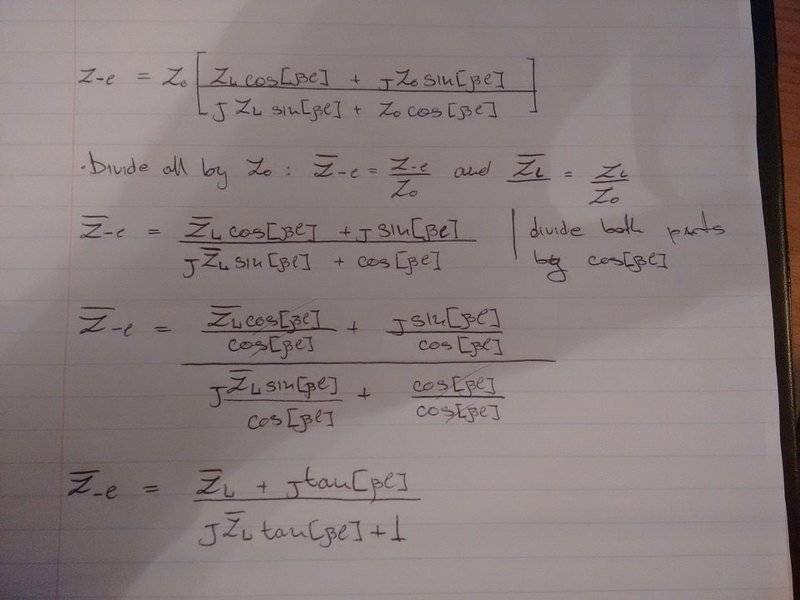 Z₋ℓ = Z₀ [ (Z_L cos[βℓ] + J Z₀ sin[βℓ]) / (J Z_L sin[βℓ] + Z₀ cos[βℓ]) ]
· Divide all by Z₀ : Z̅₋ℓ = Z₋ℓ / Z₀ and Z̅_L = Z_L / Z₀
Z̅₋ℓ = (Z̅_L cos[βℓ] + J sin[βℓ]) / (J Z̅_L sin[βℓ] + cos[βℓ]) | divide both parts by cos[βℓ]
Z̅₋ℓ = (Z̅_L cos[βℓ] / cos[βℓ] + J sin[βℓ] / cos[βℓ]) / (J Z̅_L sin[βℓ] / cos[βℓ] + cos[βℓ] / cos[βℓ])
Z̅₋ℓ = (Z̅_L + J tan[βℓ]) / (J Z̅_L tan[βℓ] + 1)